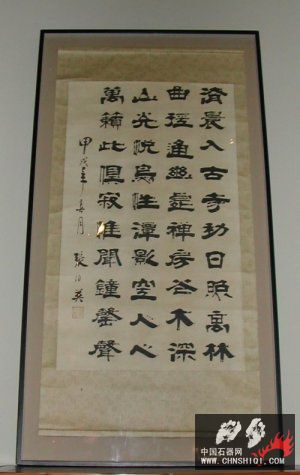 清晨入古寺初日照高林
曲徑通幽處禪房花木深
山光悅鳥性潭影空人心
萬籟此俱寂惟聞鐘磬聲
甲戌年春月 張伯英
中国石器网
WWW.CHNSHIQI.COM